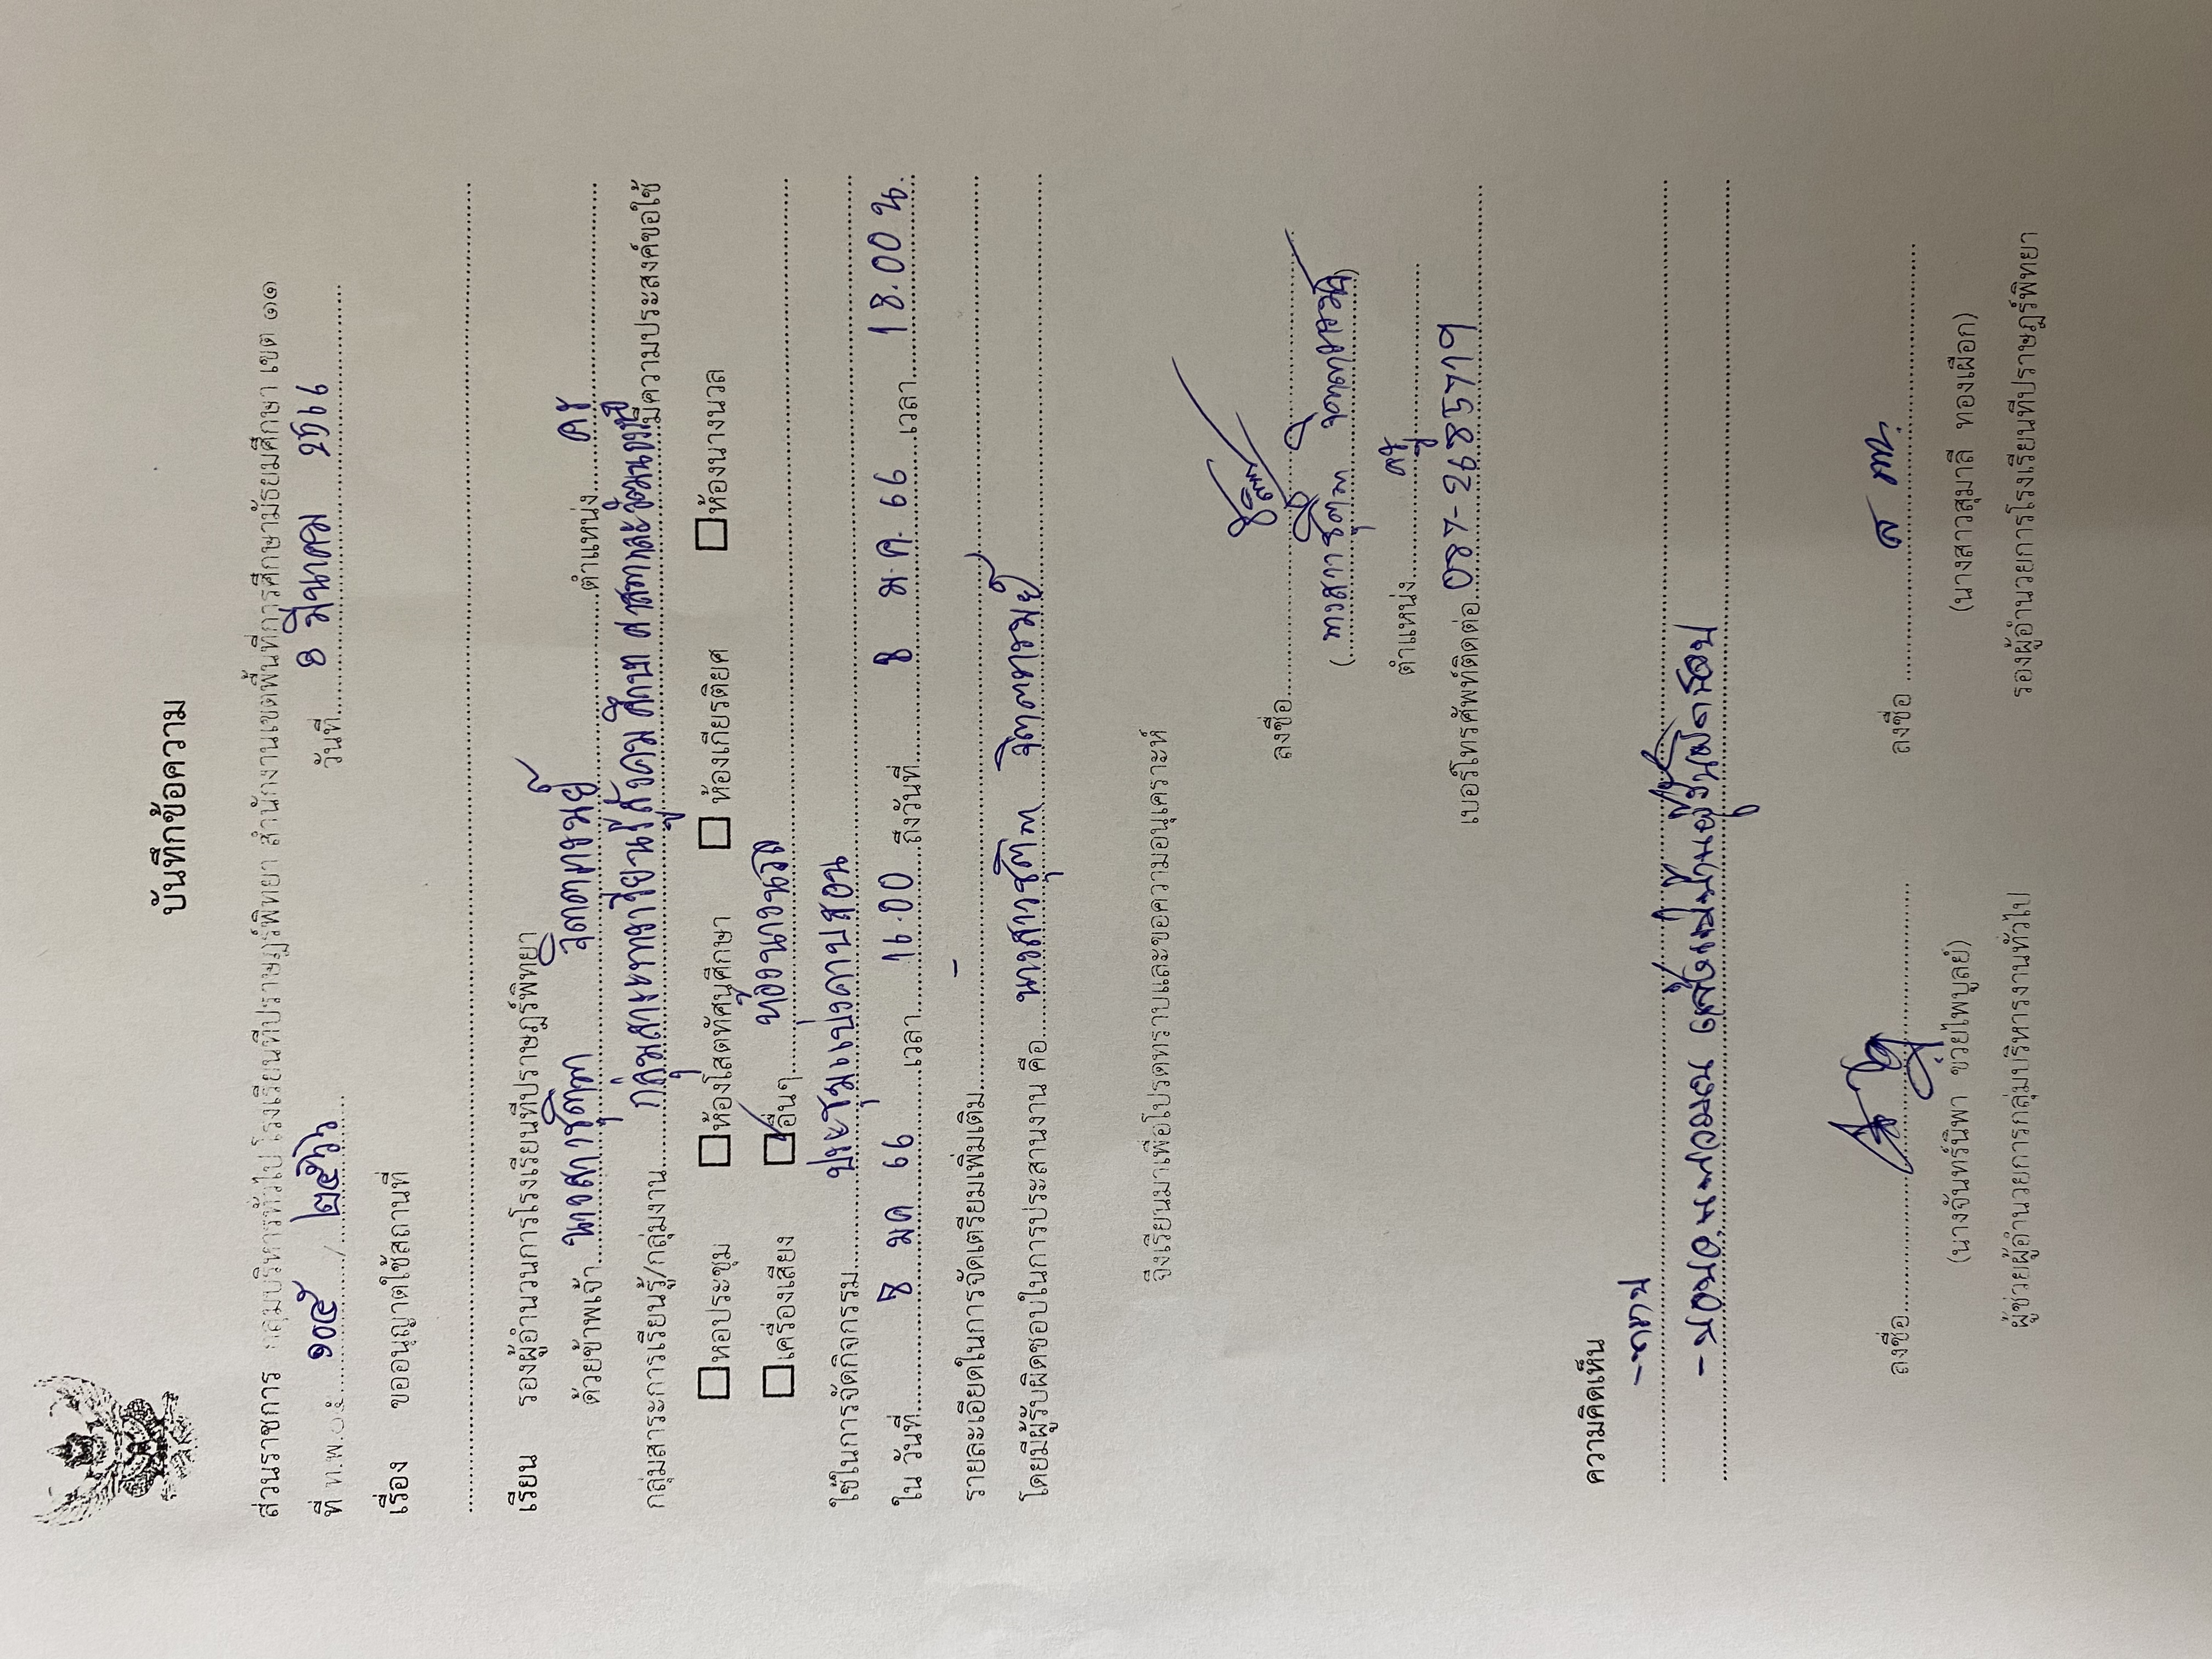 บันทึกข้อความ
ส่วนราชการ กลุ่มบริหารทั่วไป โรงเรียนทีปราษฎร์พิทยา สำนักงานเขตพื้นที่การศึกษามัธยมศึกษา เขต ๑๑
ที่ ท.พ.๐๕ ๑๐๕ / ๒๕๖๖ วันที่ 8 มีนาคม 2566
เรื่อง ขออนุญาตใช้สถานที่
เรียน รองผู้อำนวนการโรงเรียนทีปราษฎร์พิทยา
ด้วยข้าพเจ้า นางสาวชุติภา จิตตารมย์ ตำแหน่ง ครู
กลุ่มสาระการเรียนรู้/กลุ่มงาน กลุ่มสาระการเรียนรู้สังคมศึกษา ศาสนาและวัฒนธรรม มีความประสงค์ขอใช้
☐ หอประชุม ☐ ห้องโสตทัศนศึกษา ☐ ห้องเกียรติยศ ☐ ห้องนางนวล
☐ เครื่องเสียง ☑ อื่นๆ ห้องนางนวล
ใช้ในการจัดกิจกรรม ประชุมแบ่งคาบสอน
ใน วันที่ 8 มค 66 เวลา 16.00 ถึงวันที่ 8 ม.ค. 66 เวลา 18.00 น.
รายละเอียดในการจัดเตรียมเพิ่มเติม -
โดยมีผู้รับผิดชอบในการประสานงาน คือ นางสาวชุติภา จิตตารมย์
จึงเรียนมาเพื่อโปรดทราบและขอความอนุเคราะห์
ลงชื่อ
ตำแหน่ง ครู
เบอร์โทรศัพท์ติดต่อ 087-2685719
ความคิดเห็น
- ทราบ
ลงชื่อ ลงชื่อ
(นางจันทร์นิพา ขวยไพบูลย์) (นางสาวสุมาลี ทองเผือก)
ผู้ช่วยผู้อำนวยการกลุ่มบริหารงานทั่วไป รองผู้อำนวยการโรงเรียนทีปราษฎร์พิทยา